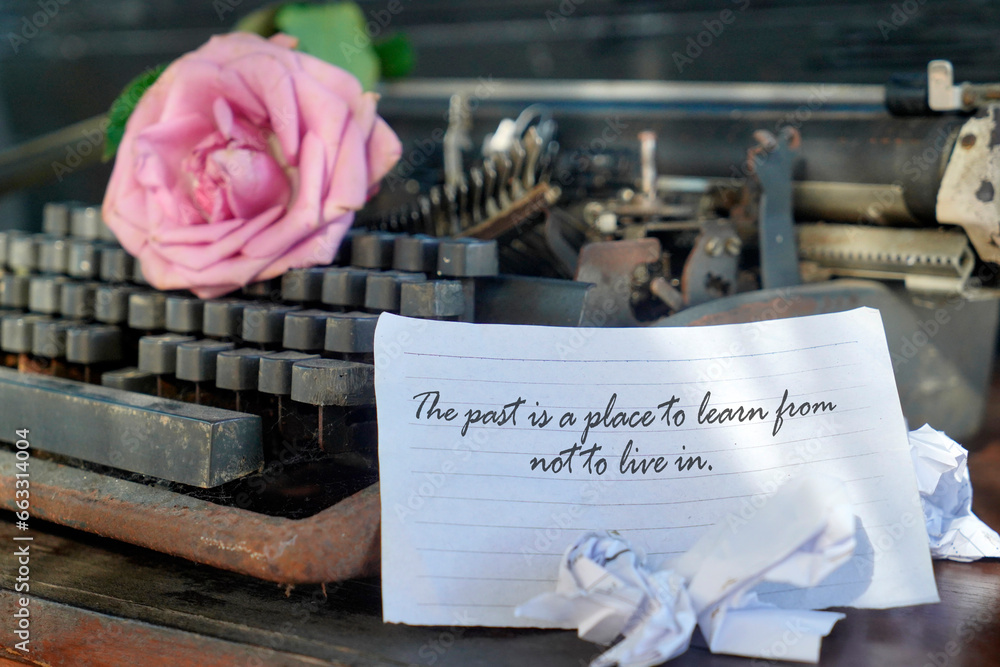 The past is a place to learn from
not to live in.
Adobe Stock | #663314004